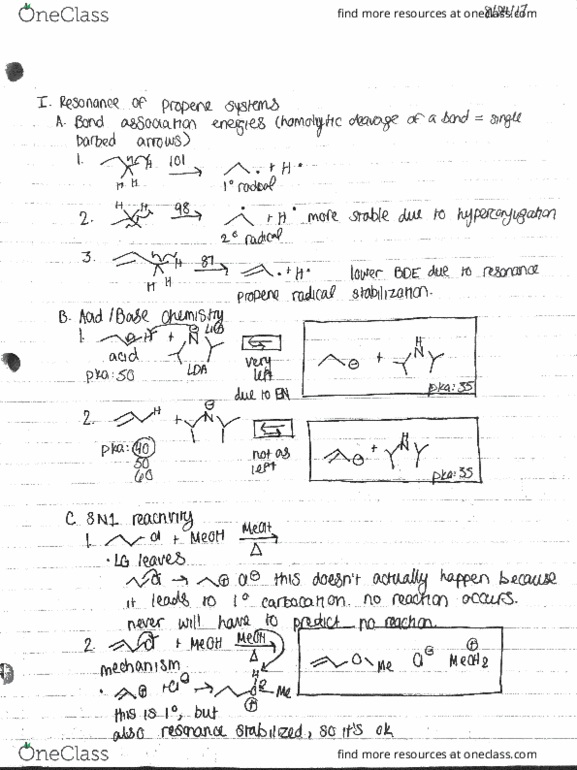 OneClass
find more resources at oneclass.com
I. Resonance of propene systems
A. Bond association energies (homolytic cleavage of a bond = single
barbed arrows)
1. H H H 101 + H•
1° radical
2. H H 98 + H• more stable due to hyperconjugation
2° radical
3. H H H 87 + H• lower BDE due to resonance
propene radical stabilization.
B. Acid/Base chemistry
1. H + N Li⊕ ⊖ + H N
acid LDA very
pka: 50 left pka: 35
due to EN
2. H + N ⊖ ⊖ + H N
pka: 40 not as
50 left pka: 35
60
C. SN1 reactivity
1. Cl + MeOH MeOH
Δ
• LG leaves
Cl → ⊕ Cl⊖ this doesn't actually happen because
it leads to 1° carbocation. no reaction occurs.
never will have to predict no reaction.
2. Cl + MeOH MeOH O Me Cl⊖ MeOH2 ⊕
Δ
mechanism
• ⊕ + Cl⊖ → H Me ⊕
this is 1°, but
also resonance stabilized, so it's ok
OneClass
find more resources at oneclass.com